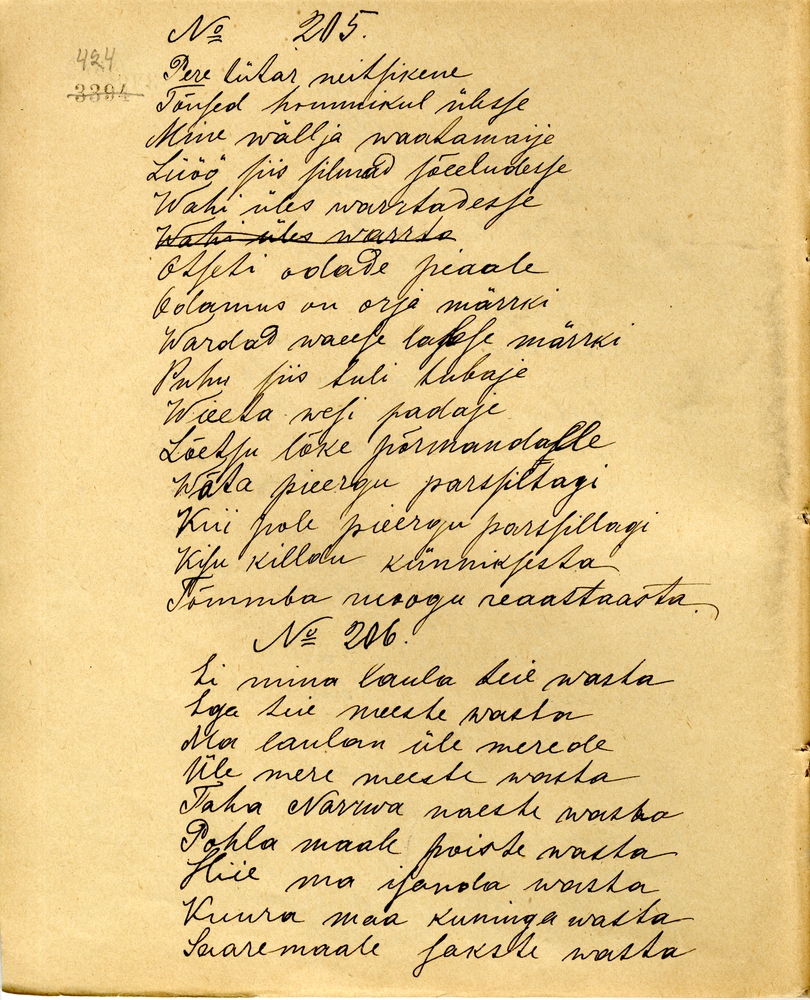 № 205.
424
3394
Pere tütar neitsikene
Tõused hommikul ülesse
Mine wällja waatamaije
Lüöö siis silmad jõeeludesse
Wahi üles warrtadesse
Wahi üles warrta
Otseti odade peaale
Odamus on orja märrki
Wardad waeese lapse märrki
Puhu siis tuli tubaje
Wieeta wesi padaje
Lõetsu lõke põrmandalle
Wõta pieergu parssiltagi
Kui pole pieergu parssillagi
Kisu killan künniksesta
Tõmmba moogu reaasttaasta
№ 206.
Ei mina laula teie wasta
Ega teie meeste wasta
Ma laulan üle merede
Üle mere meeste wasta
Taha Narrwa naeste wasta
Pohla maale poiste wasta
Hiie ma isanda wasta
Kuura maa kuninga wasta
Saaremaale sakste wasta